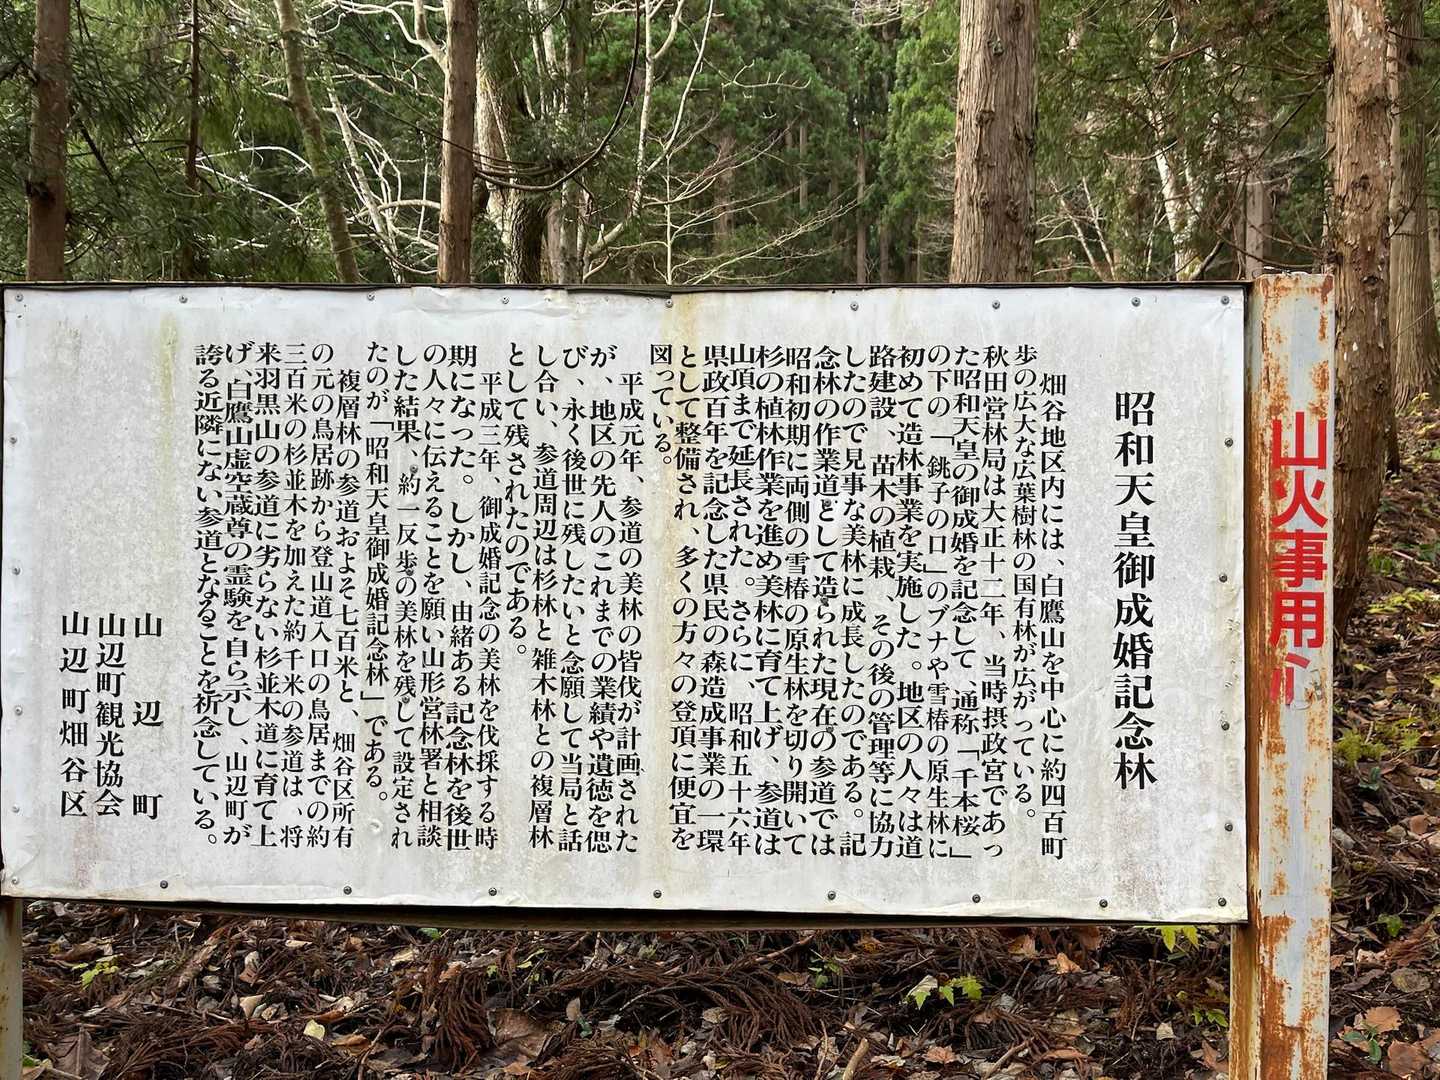 昭和天皇御成婚記念林
畑谷地区内には、白鷹山を中心に約四百町
歩の広大な広葉樹林の国有林が広がっている。
秋田営林局は大正十二年、当時摂政宮であっ
た昭和天皇の御成婚を記念して、通称「千本桜」
の下の「銚子の口」のブナや雪椿の原生林に
初めて造林事業を実施した。地区の人々は道
路建設、苗木の植栽、その後の管理等に協力
したので見事な美林に成長したのである。記
念林の作業道として造られた現在の参道では
昭和初期に両側の雪椿の原生林を切り開いて
杉の植林作業を進め美林に育て上げ、参道は
山頂まで延長された。さらに、昭和五十六年
県政百年を記念した県民の森造成事業の一環
として整備され、多くの方々の登頂に便宜を
図っている。
平成元年、参道の美林の皆伐が計画された
が、地区の先人のこれまでの業績や遺徳を偲
び、永く後世に残したいと念願して当局と話
し合い、参道周辺は杉林と雑木林との複層林
として残されたのである。
平成三年、御成婚記念の美林を伐採する時
期になった。しかし、由緒ある記念林を後世
の人々に伝えることを願い山形営林署と相談
した結果、約一反歩の美林を残して設定され
たのが「昭和天皇御成婚記念林」である。
複層林の参道およそ七百米と、畑谷区所有
の元の鳥居跡から登山道入口の鳥居までの約
三百米の杉並木を加えた約千米の参道は、将
来羽黒山の参道に劣らない杉並木道に育て上
げ、白鷹山虚空蔵尊の霊験を自ら示し、山辺町が
誇る近隣にない参道となることを祈念している。
山辺町
山辺町観光協会
山辺町畑谷区
山火事用心